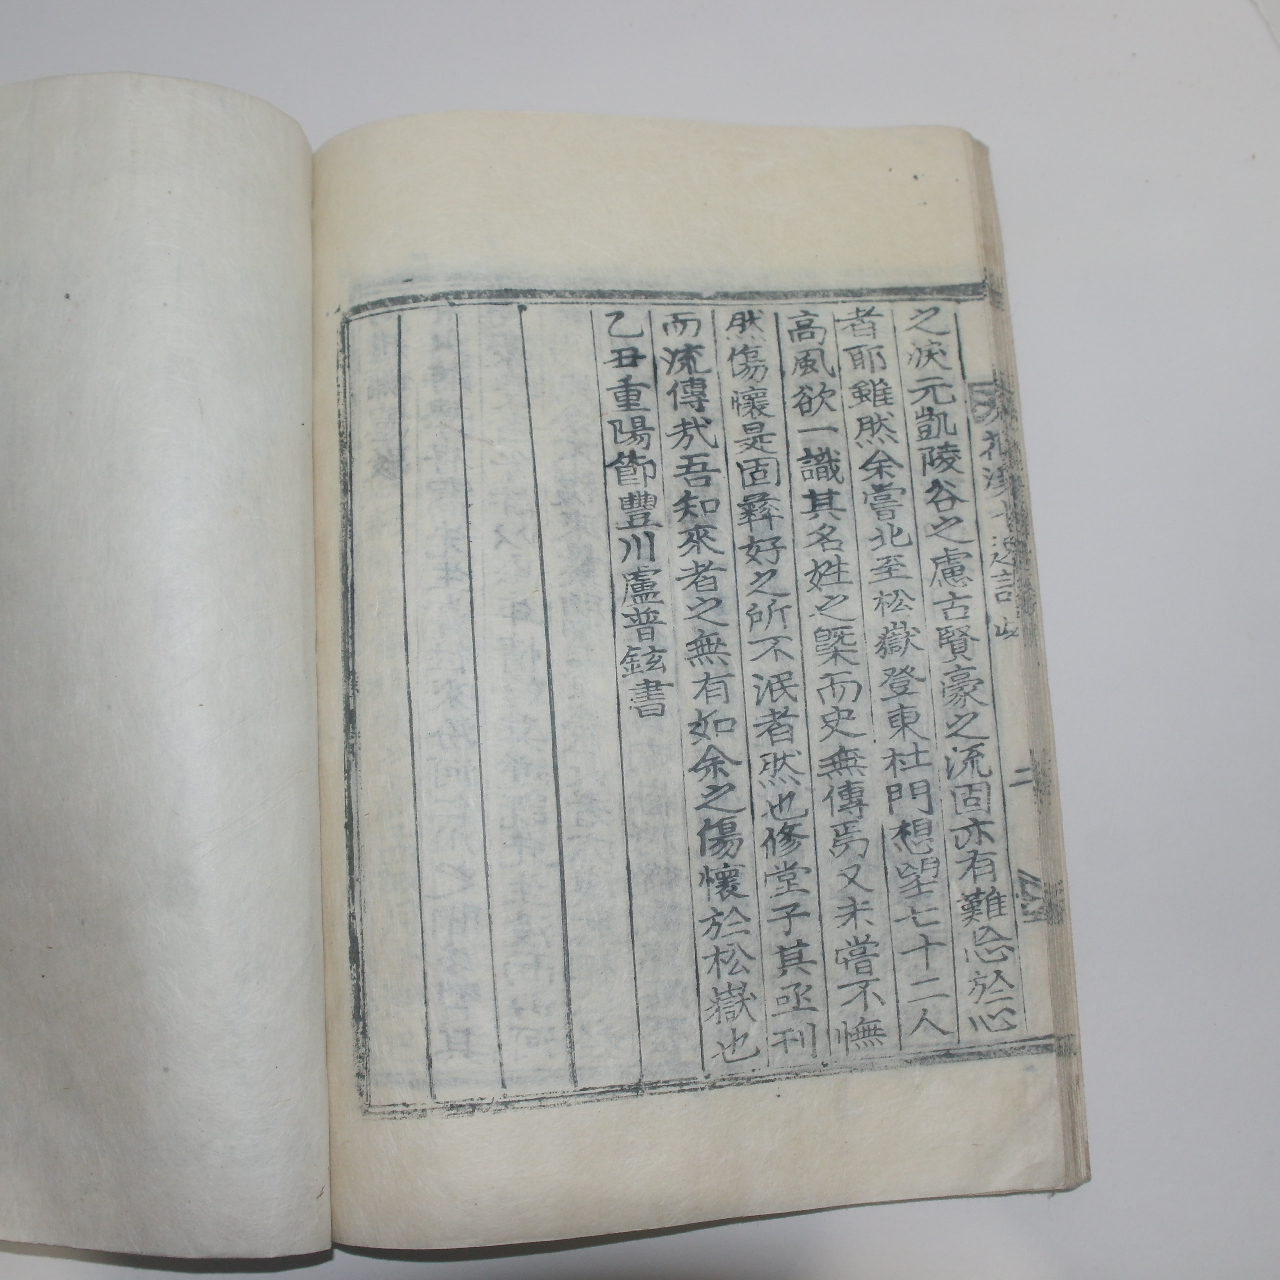 之淚元凱陵谷之慮古賢豪之流固亦有難忘於心
者耶雖然余嘗北至松嶽登東杜門想望七十二人
高風欲一識其名姓之槩而史無傳焉又未嘗不憮
然傷懷是固彛好之所不泯者然也修堂子其亟刊
而流傳哉吾知來者之無有如余之傷懷於松嶽也
乙丑重陽節豐川盧普鉉書
二